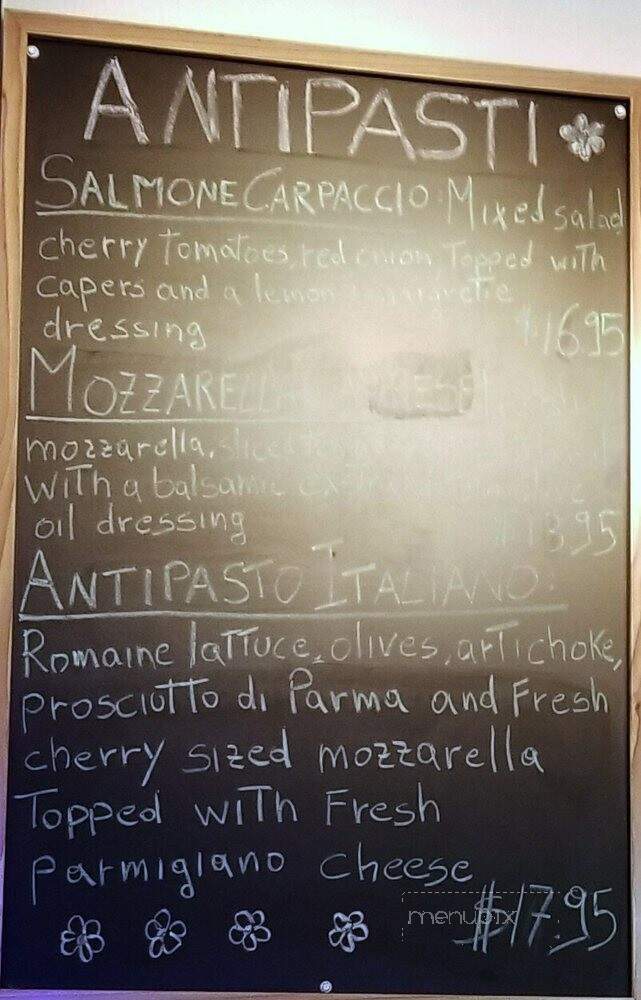 ANTIPASTI
SALMONE CARPACCIO: Mixed salad
cherry tomatoes, red onion Topped with
capers and a lemon vinaigrette
dressing $16.95
MOZZARELLA CAPRESE
mozzarella, sliced
with a balsamic extra
oil dressing $13.95
ANTIPASTO ITALIANO:
Romaine lattuce, olives, artichoke,
prosciutto di Parma and Fresh
cherry sized mozzarella
Topped with Fresh
parmigiano cheese
$17.95
menupix